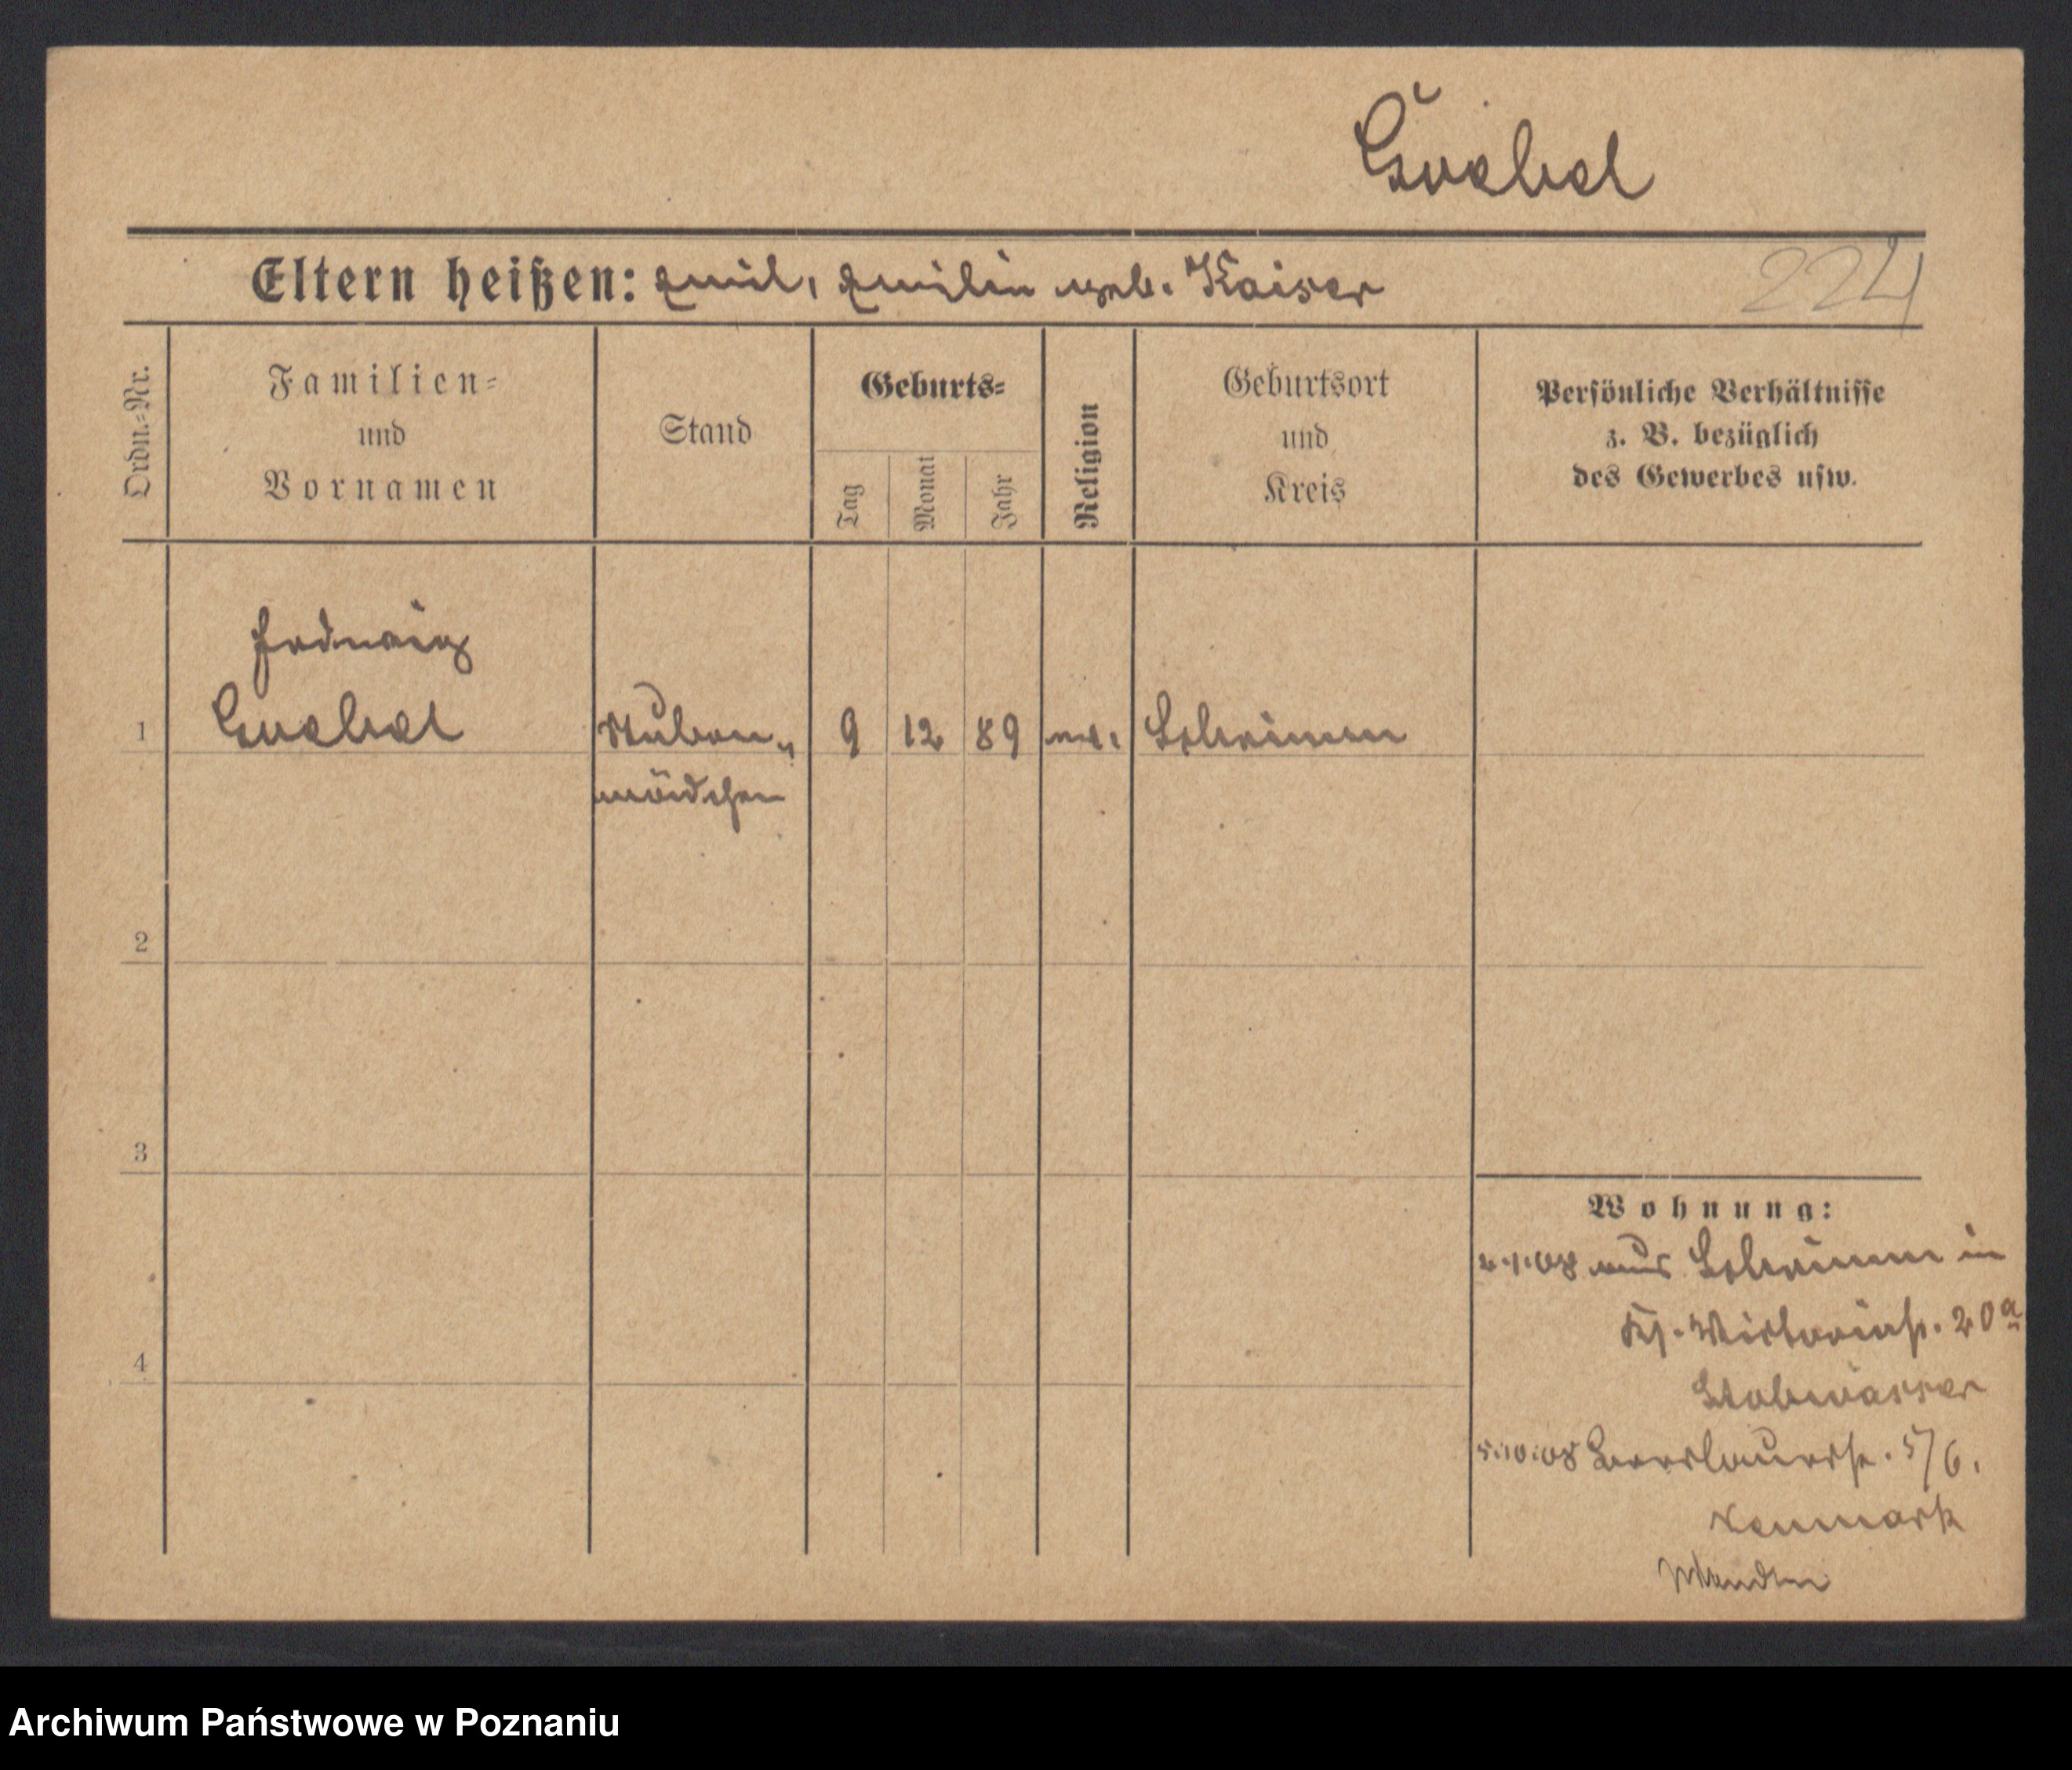 Goebel
Eltern heißen: Emil, Emilie geb. Kaiser
224
Ordn.-Nr.
Familien-
und
Vornamen
Stand
Geburts-
Tag
Monat
Jahr
Religion
Geburtsort
und
Kreis
Persönliche Verhältnisse
z. B. bezüglich
des Gewerbes usw.
Hedwig
1 Goebel Stuben- 9 12 89 ev. Schrimm
mädchen
2
3
4
Wohnung:
2.1.08 aus Schrimm in
Viktoriastr. 20a
5.10.08 5/6.
Archiwum Państwowe w Poznaniu